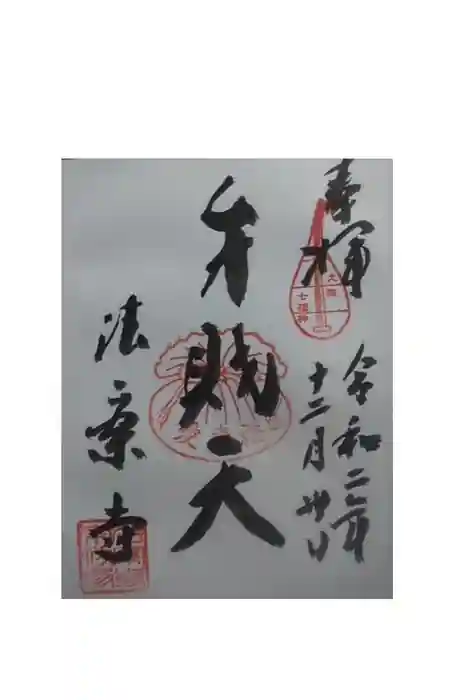 奉拝
大阪
七福神
令和二年
十二月卅日
弁財天
法案寺